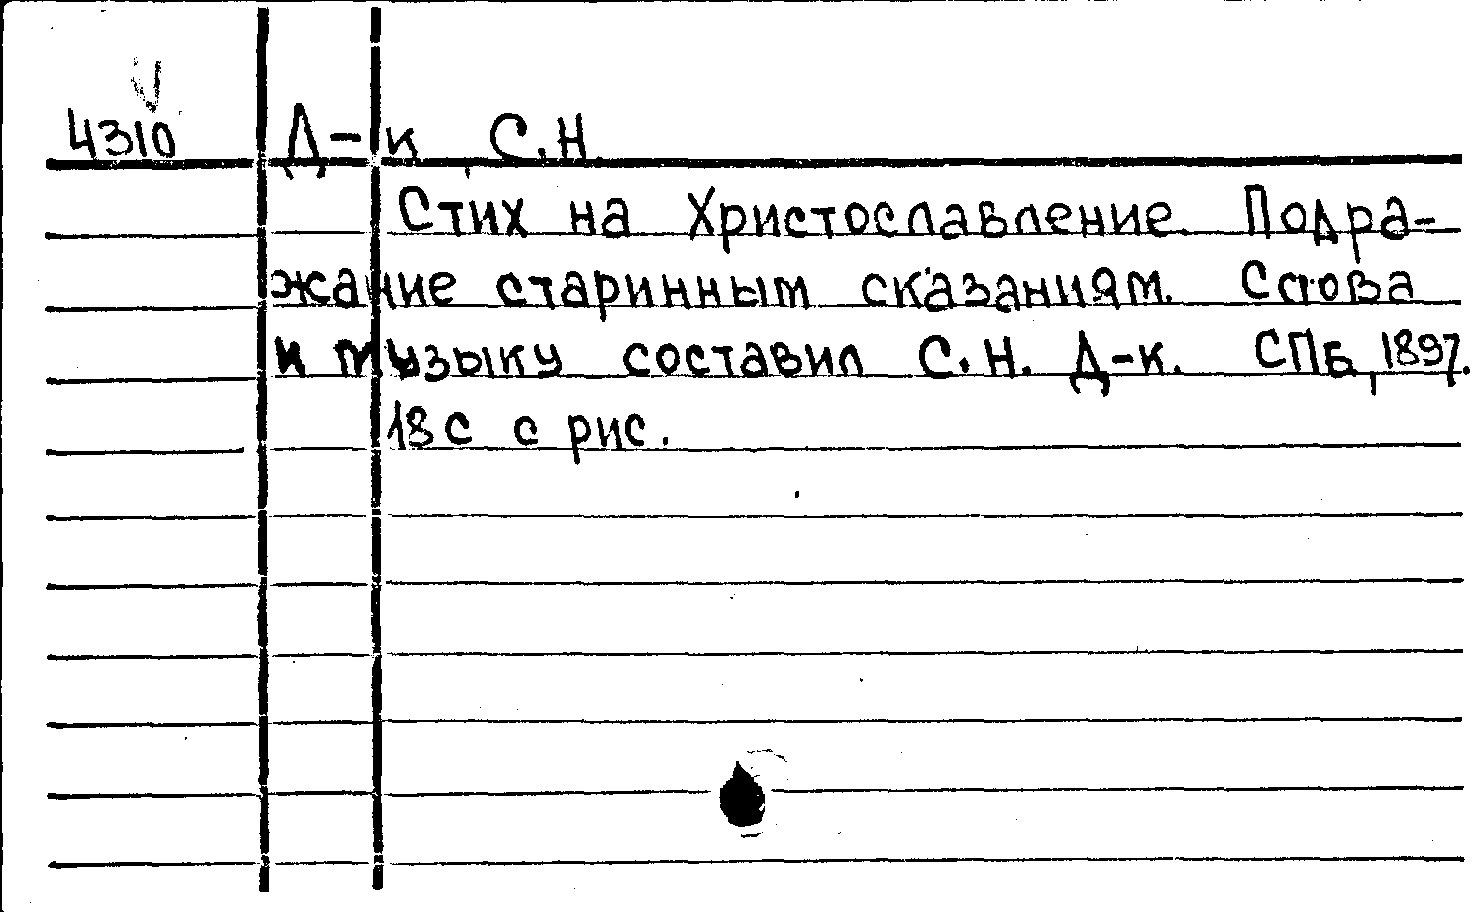 4310 Д-к, С.Н.
Стих на Христославление. Подра-
жание старинным сказаниям. Слова
и музыку составил С.Н. Д-к. СПБ, 1897.
18 с с рис.